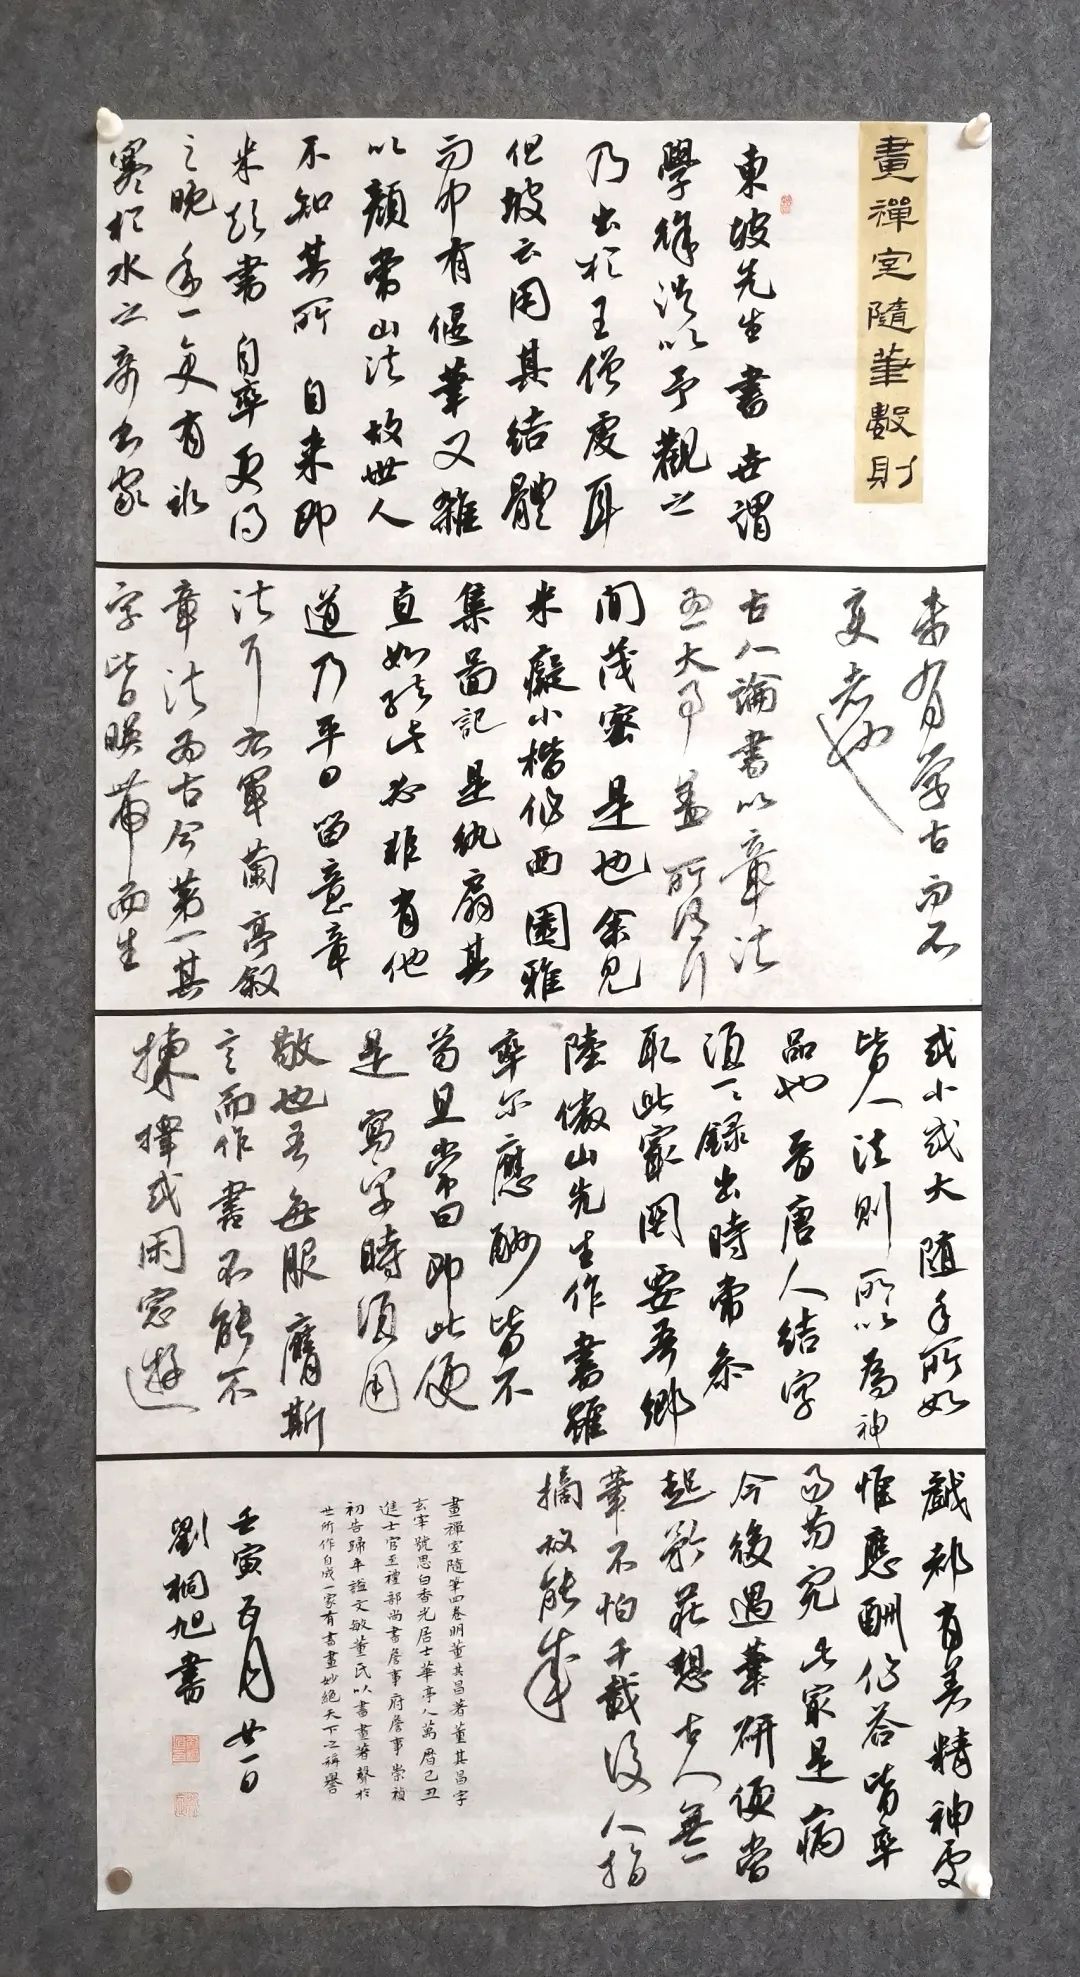 畫禪室隨筆數則
東坡先生書世謂
學徐浩以予觀之
乃出於王僧虔耳
但坡云用其結體
而中有偃筆又雜
以顏常山法故世人
不知其所自來即
米顛書自率更得
之晚年一變有冰
寒於水之奇書家
未有學古而不
變者也
古人論書以章法
為一大事蓋所謂行
間茂密是也余見
米癡小楷作西園雅
集圖記是紈扇其
直如弦此必非有他
道乃平日留意章
法耳右軍蘭亭叙
章法為古今第一其
字皆映帶而生
或小或大隨手所如
皆入法則所以為神
品也晉唐人結字
須一一錄出時常參
取此最關要吾鄉
陸儼山先生作書雖
率尔應酬皆不
苟且常曰即此便
是寫字時須用
敬也吾每服膺斯
言而作書不能不
揀擇或閑窓遊
戲都有着精神處
惟應酬作答皆率
而苟完此家是病
今後遇筆研便當
起矜莊想古人無一
筆不怕千載後人指
摘故能成
畫禪室隨筆四卷明董其昌著董其昌字
玄宰號思白香光居士華亭人萬曆己丑
進士官至禮部尚書詹事府詹事崇禎
初告歸卒謚文敏董氏以書畫著聲於
世所作自成一家有書畫妙絕天下之稱譽
壬寅五月廿一日
劉桐旭書